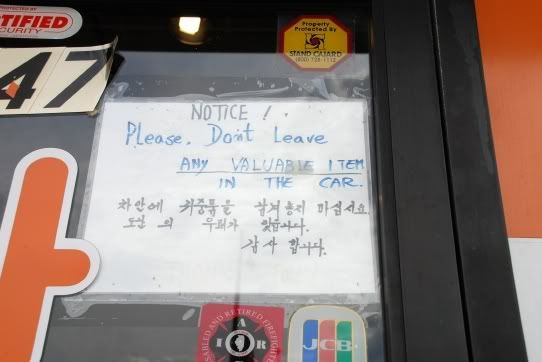 PROTECTED BY
CERTIFIED
SECURITY
47
Property
Protected By
STAND GUARD
(800) 726-1112
NOTICE !
Please. Don't Leave
ANY VALUABLE ITEM
IN THE CAR.
차안에 귀중품을 남겨놓지 마십시요.
도난 의 우려가 있습니다.
감사 합니다.
DISABLED AND RETIRED FIREFIGHTERS
A
I R
JCB